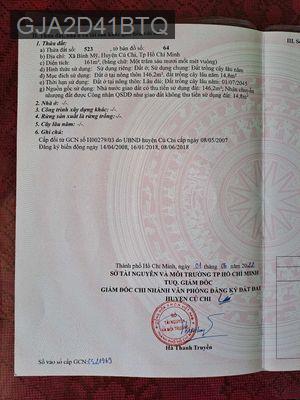 GJA2D41BTQ
1. Thửa đất:
a) Thửa đất số: 523 tờ bản đồ số: 64
b) Địa chỉ: Xã Bình Mỹ, Huyện Củ Chi, TP Hồ Chí Minh
c) Diện tích: 161m², (bằng chữ: Một trăm sáu mươi mốt mét vuông)
d) Hình thức sử dụng: Sử dụng riêng: Đất ở; Sử dụng chung: Đất trồng cây lâu năm
đ) Mục đích sử dụng: Đất ở tại nông thôn 146,2m²; đất trồng cây lâu năm 14,8m²
e) Thời hạn sử dụng: Đất ở tại nông thôn: Lâu dài; Đất trồng cây lâu năm: 01/07/2045
g) Nguồn gốc sử dụng: Nhà nước giao đất có thu tiền sử dụng đất: 146,2m²; Nhận
nhượng đất được Công nhận QSDĐ như giao đất không thu tiền sử dụng đất: 14,8m²
2. Nhà ở: -/-
3. Công trình xây dựng khác: -/-
4. Rừng sản xuất là rừng trồng: -/-
5. Cây lâu năm: -/-
6. Ghi chú:
Cấp đổi từ GCN số H00279/03 do UBND huyện Củ Chi cấp ngày 08/05/2007
Đăng ký biến động ngày 14/04/2008, 16/01/2018, 08/06/2018
III. S
Thành phố Hồ Chí Minh, ngày 01
SỞ TÀI NGUYÊN VÀ MÔI TRƯỜNG TP HỒ CHÍ MINH
TUQ. GIÁM ĐỐC
GIÁM ĐỐC CHI NHÁNH VĂN PHÒNG ĐĂNG KÝ ĐẤT ĐAI
HUYỆN CỦ CHI
SỞ
TÀI NGUYÊN
VÀ MÔI TRƯỜNG
Hà Thanh Truyền
Số vào sổ cấp GCN: